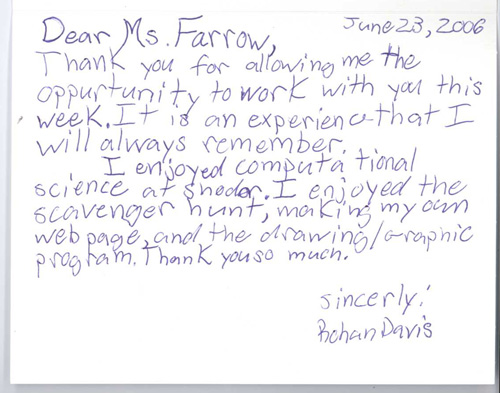 June 23, 2006
Dear Ms. Farrow,
Thank you for allowing me the
oppurtunity to work with you this
week. It is an experience that I
will always remember.
I enjoyed computational
science at shodor. I enjoyed the
scavenger hunt, making my own
web page, and the drawing/graphic
program. Thank you so much.
sincerly,
Rohan Davis